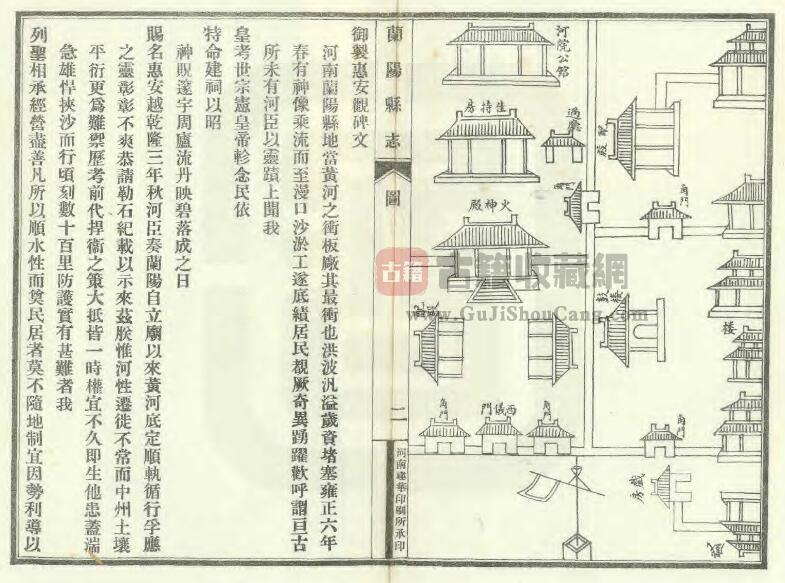 河院公館
住持房
過廳
配殿
角門
火神殿
鼓楼
楼
配殿
角門
西儀門
角門
角門
戲房
古籍
古籍收藏網
www.GuJiShouCang.com
蘭陽縣志
圖
二
河南建華印刷所承印
御製惠安觀碑文
河南蘭陽縣地當黃河之衝板廠其最衝也洪波汎溢歲資堵塞雍正六年
春有神像乘流而至漫口沙淤工遂底績居民覩厥奇異踴躍歡呼謂亘古
所未有河臣以靈蹟上聞我
皇考世宗憲皇帝軫念民依
特命建祠以昭
神貺邃宇周廬流丹映碧落成之日
賜名惠安越乾隆三年秋河臣奏蘭陽自立廟以來黃河底定順軌循行孚應
之靈彰彰不爽恭請勒石紀載以示來茲朕惟河性遷徙不常而中州土壤
平衍更為難禦歷考前代捍衞之策大抵皆一時權宜不久即生他患蓋湍
急雄悍挾沙而行頃刻數十百里防護實有甚難者我
列聖相承經營盡善凡所以順水性而奠民居者莫不隨地制宜因勢利導以